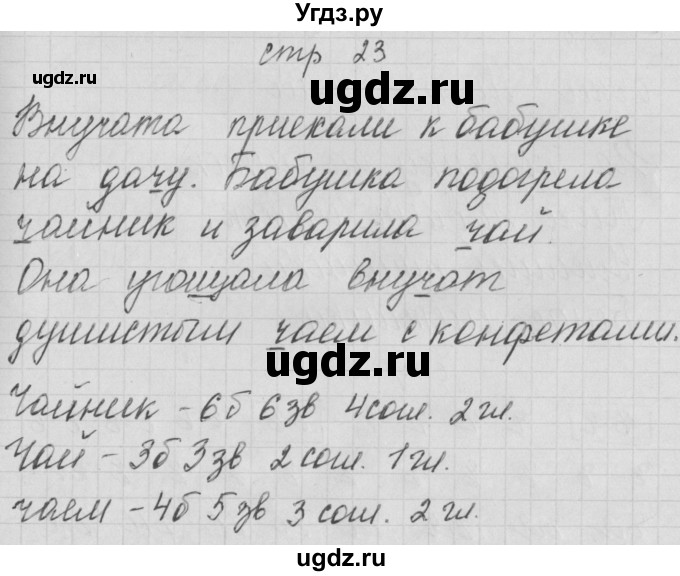 Угдз.ру
стр 23
ugdz.ru
ugdz.ru
Внучата приехали к бабушке
на дачу. Бабушка подогрела
чайник и заварила чай.
Она угощала внучат
душистым чаем с конфетами.
ugdz.ru
Чайник - 6б 6 зв 4 сог. 2 гл.
Чай - 3б 3 зв 2 сог. 1 гл.
чаем - 4б 5 зв 3 сог. 2 гл.
ugdz.ru
ugdz.ru